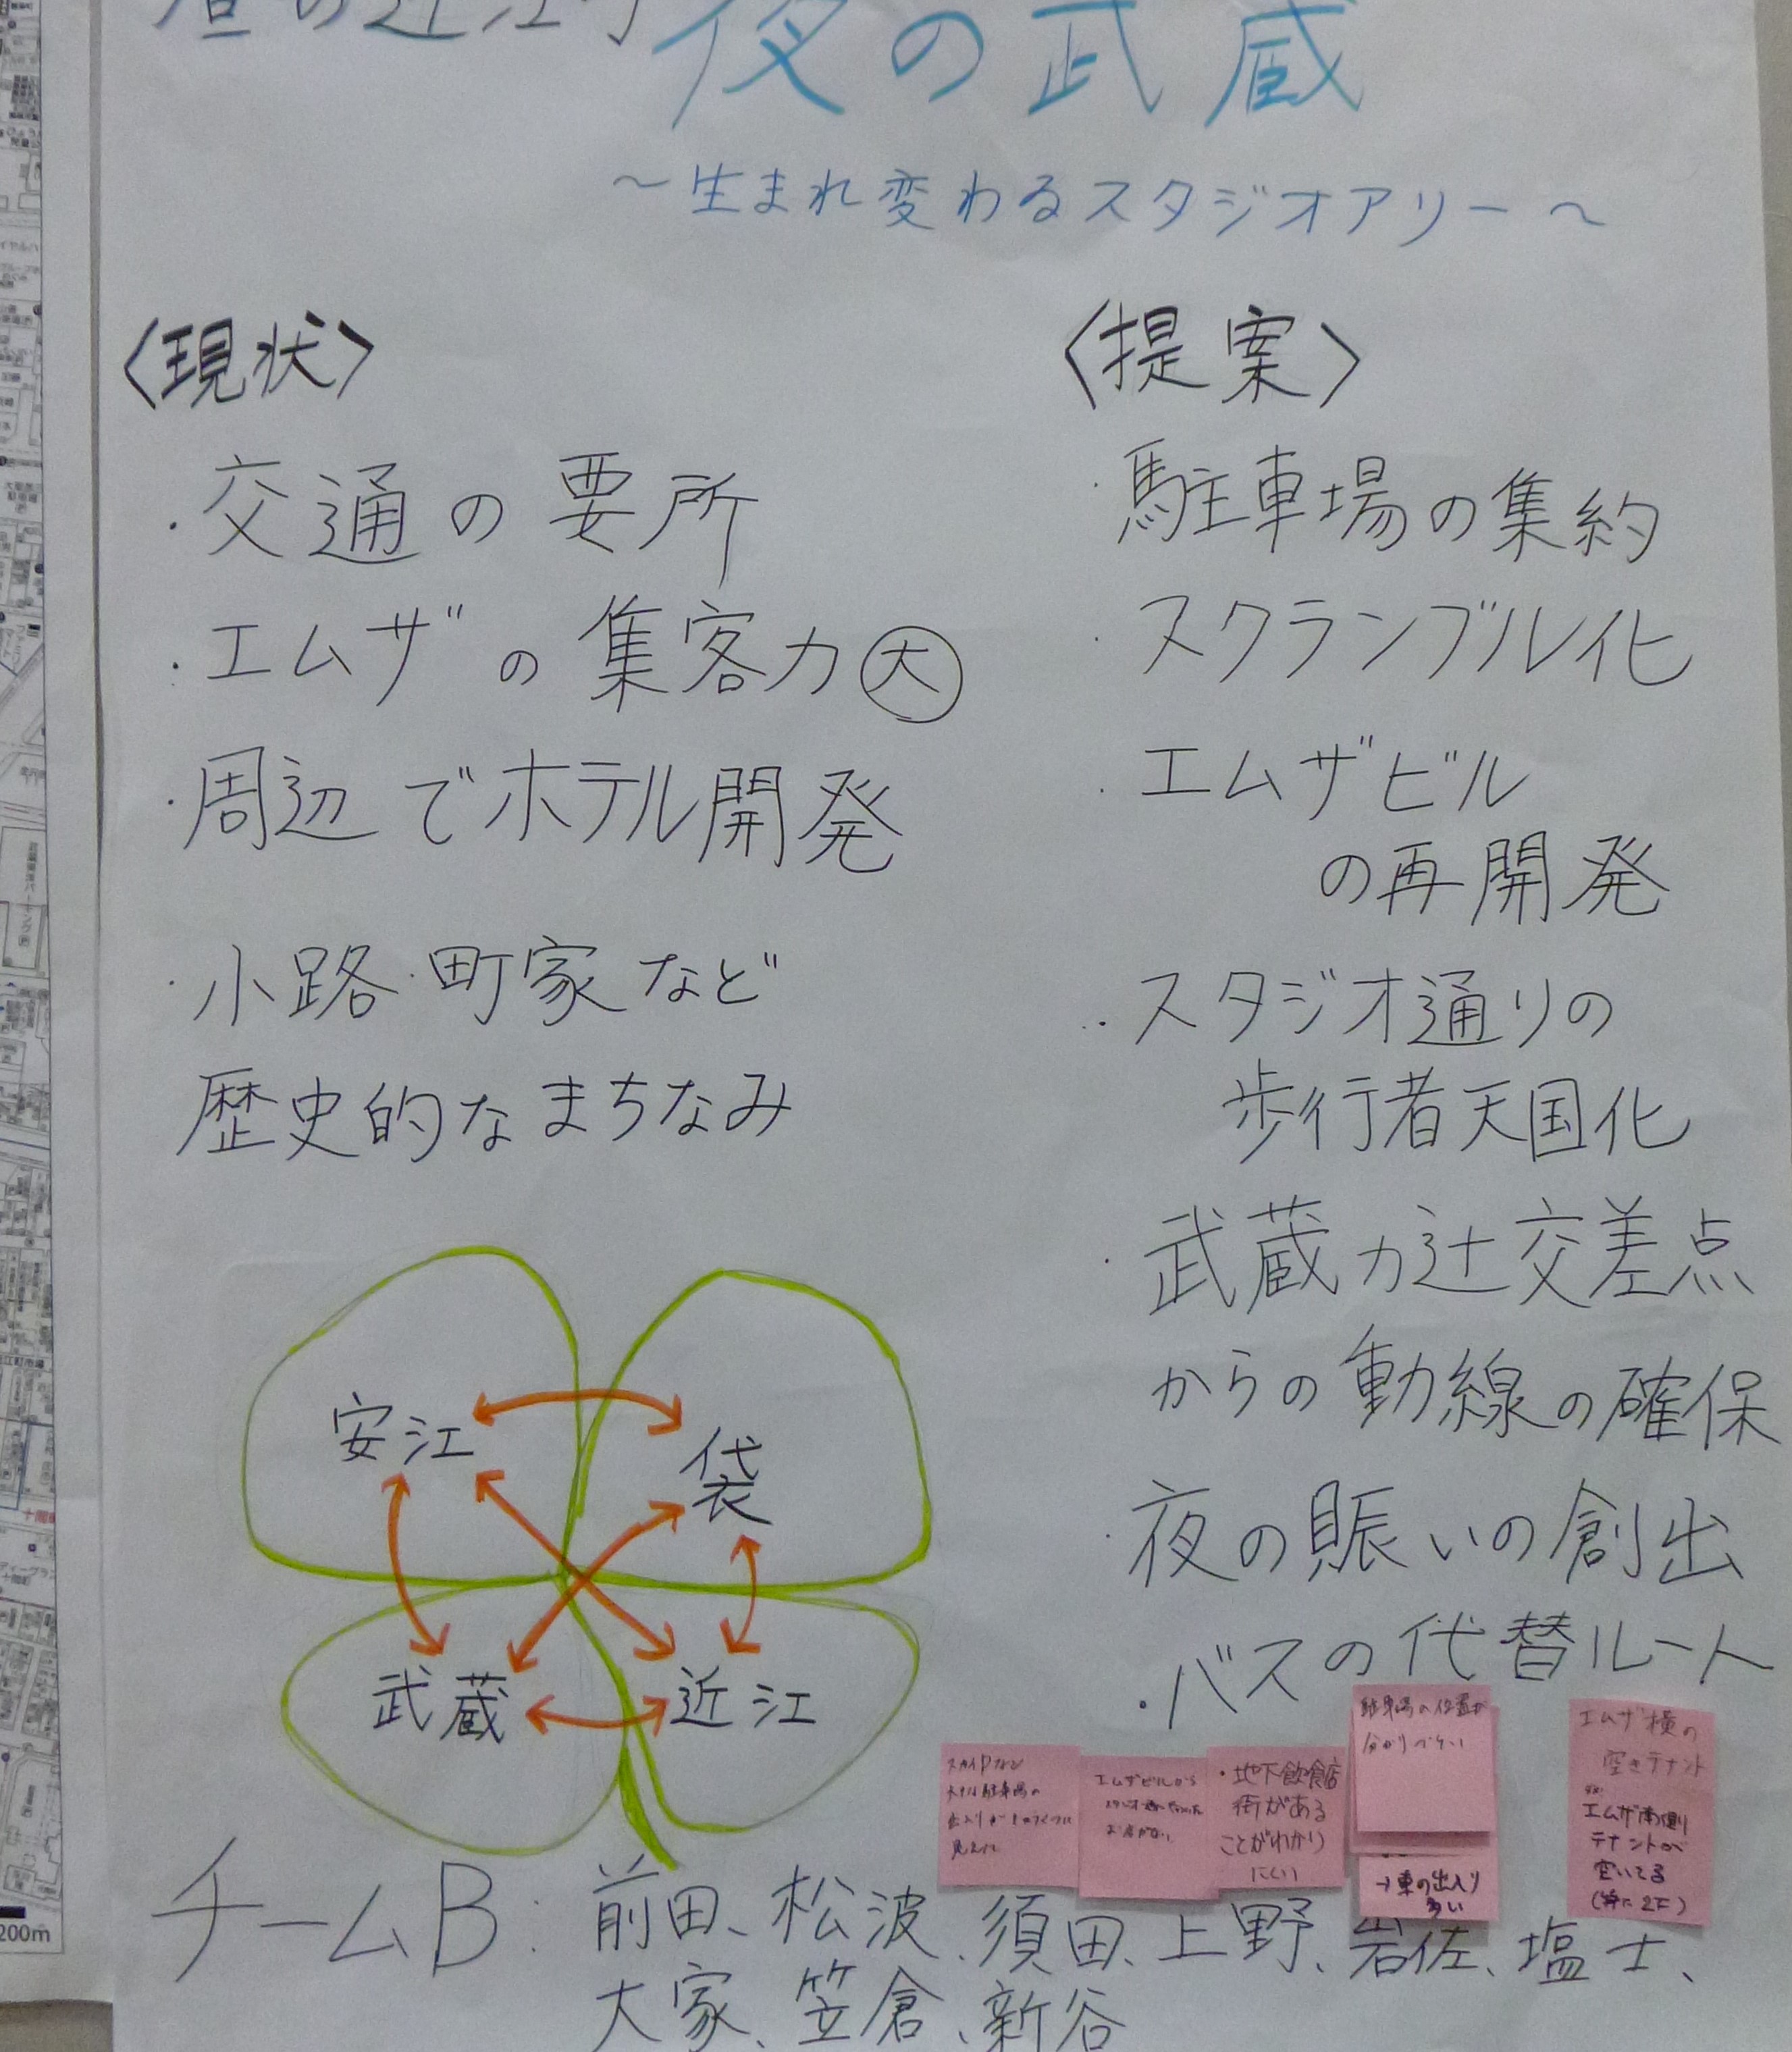 昼の近江町
夜の武蔵
～生まれ変わるスタジオアリー～
〈現状〉
・交通の要所
・エムザの集客力大
・周辺でホテル開発
・小路・町家など
歴史的なまちなみ
〈提案〉
・駐車場の集約
・スクランブル化
・エムザビル
の再開発
・スタジオ通りの
歩行者天国化
・武蔵ヶ辻交差点
からの動線の確保
・夜の賑いの創出
・バスの代替ルート
安江
袋
武蔵
近江
エムザビルから
・地下飲食店
街がある
ことがわかり
にくい
駐車場の位置が
分かりづらい
→車の出入り
多い
エムザ横の
空きテナント
エムザ南側
テナントが
空いてる
(特に2F)
チームB：前田、松波、須田、上野、岩佐、塩士、
大家、笠倉、新谷
200m